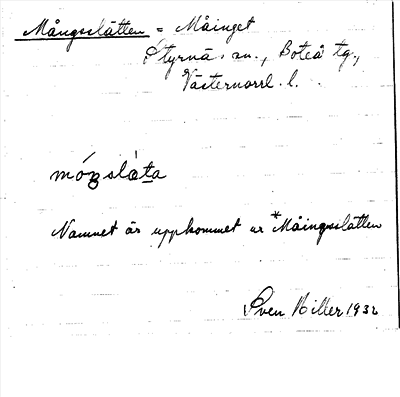 Mångsslåtten = Måinget
Styrnäs sn., Boteå tg.,
Västernorrl. l.
Namnet är uppkommet ur *Måingsslåtten
Sven Hiller 1932